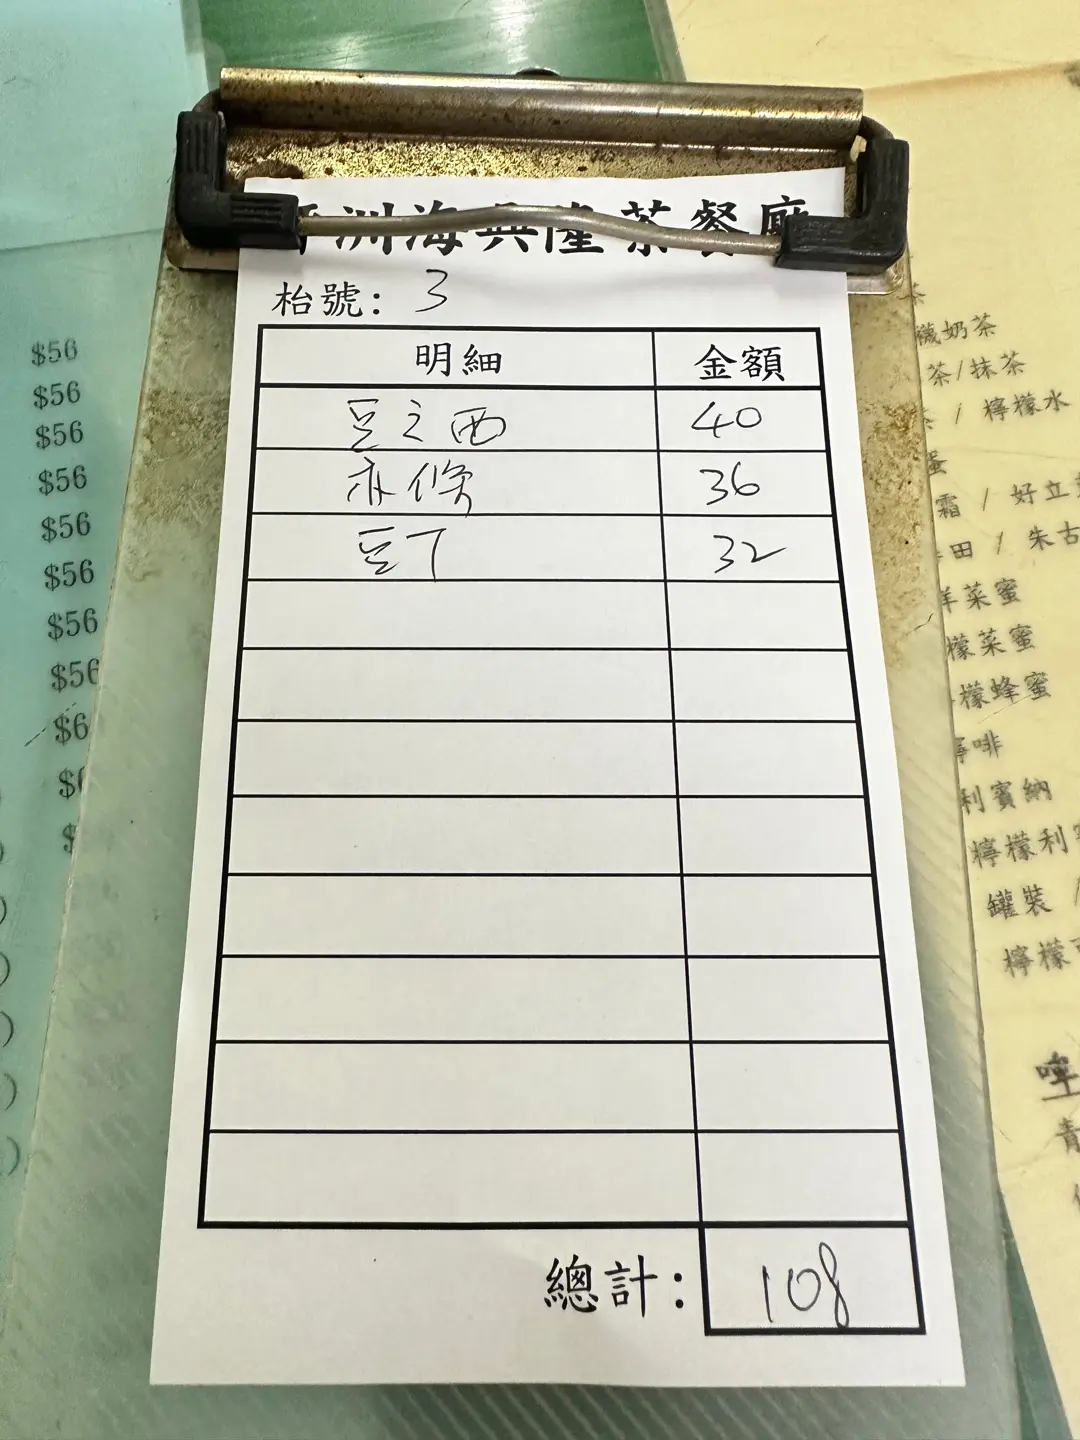 洲海興隆茶餐廳
枱號: 3
明細 金額
豆之西 40
亦倏 36
豆丁 32
總計: 108
$56
$56
$56
$56
$56
$56
$56
$56
$6
襪奶茶
茶/抹茶
/ 檸檬水
蛋
霜 / 好立
田 / 朱古
洋菜蜜
檬菜蜜
檬蜂蜜
啡
利賓納
檸檬利
罐裝 /
檸檬
啤
青